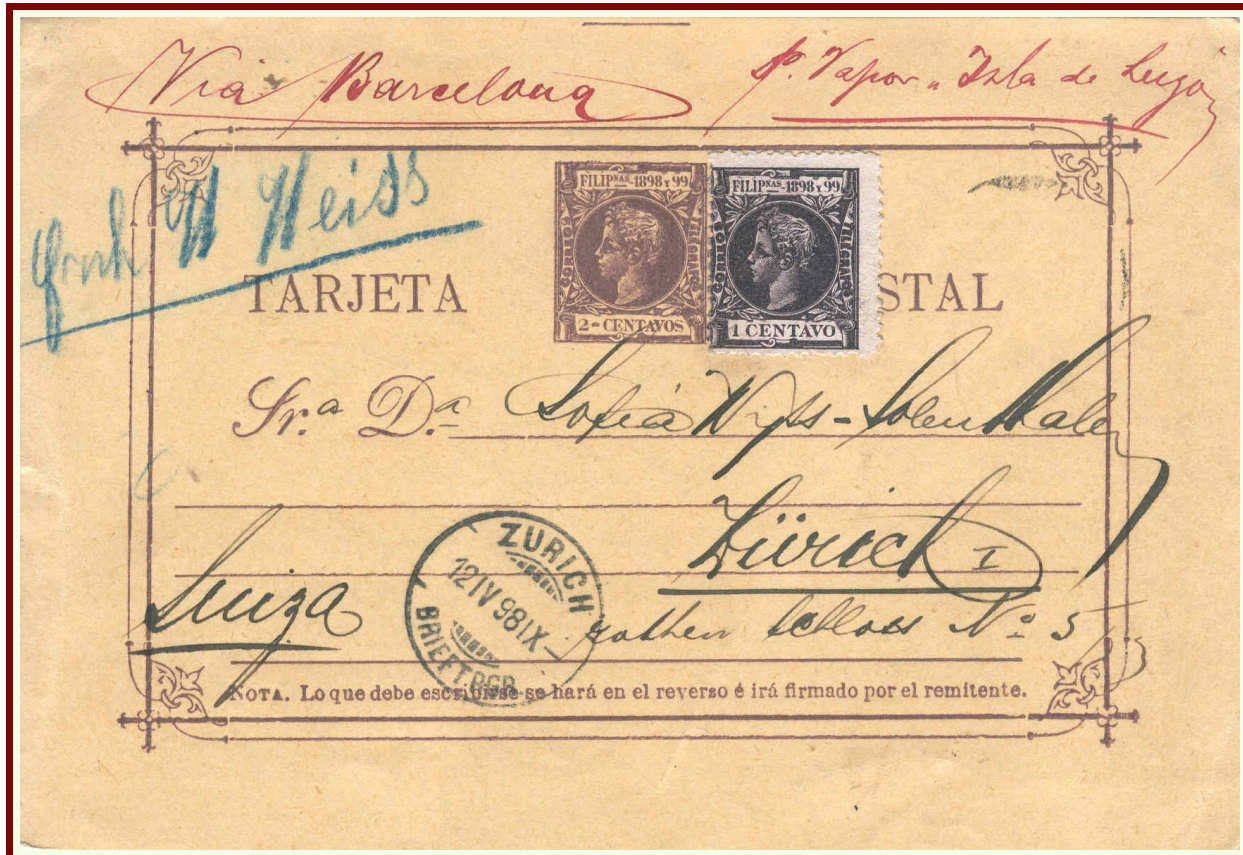 Via Barcelona
p. Vapor "Isla de Luzón
W Weiss
FILIPNAS-1898 Y 99
CORREOS
TELEGRAFS
2=CENTAVOS
FILIPNAS-1898 Y 99
CORREOS
TELEGRAFS
1 CENTAVO
TARJETA STAL
Sr.a D.a Sofia Wyss-Solenthaler
Zürich I
Suiza
rothen Schloss No 5
ZÜRICH
12 IV 98 IX
BRIEFTRGR
NOTA. Lo que debe escribirse se hará en el reverso é irá firmado por el remitente.